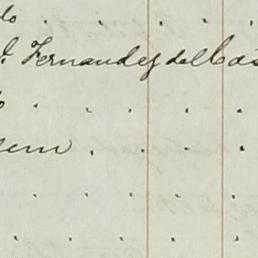 do
J. Fernandez del Cas
o
dem